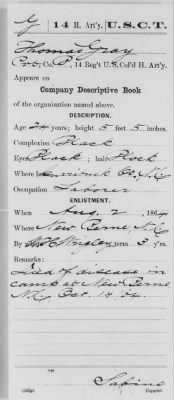 G 14 H. Art'y. U.S.C.T.
Thomas Gray
Pvt, Co. B, 14 Reg't U.S. Col'd H. Art'y.
Appears on
Company Descriptive Book
of the organization named above.
DESCRIPTION.
Age 24 years; height 5 feet 5 inches.
Complexion Black
Eyes Black; hair Black
Where born Co. N.C.
Occupation Laborer
ENLISTMENT.
When Aug. 2, 1864
Where New Berne N.C.
By term 3 y'rs.
Remarks:
Died of disease in
camp at New Berne
N.C. Oct. 14
Sabine
Copyist.